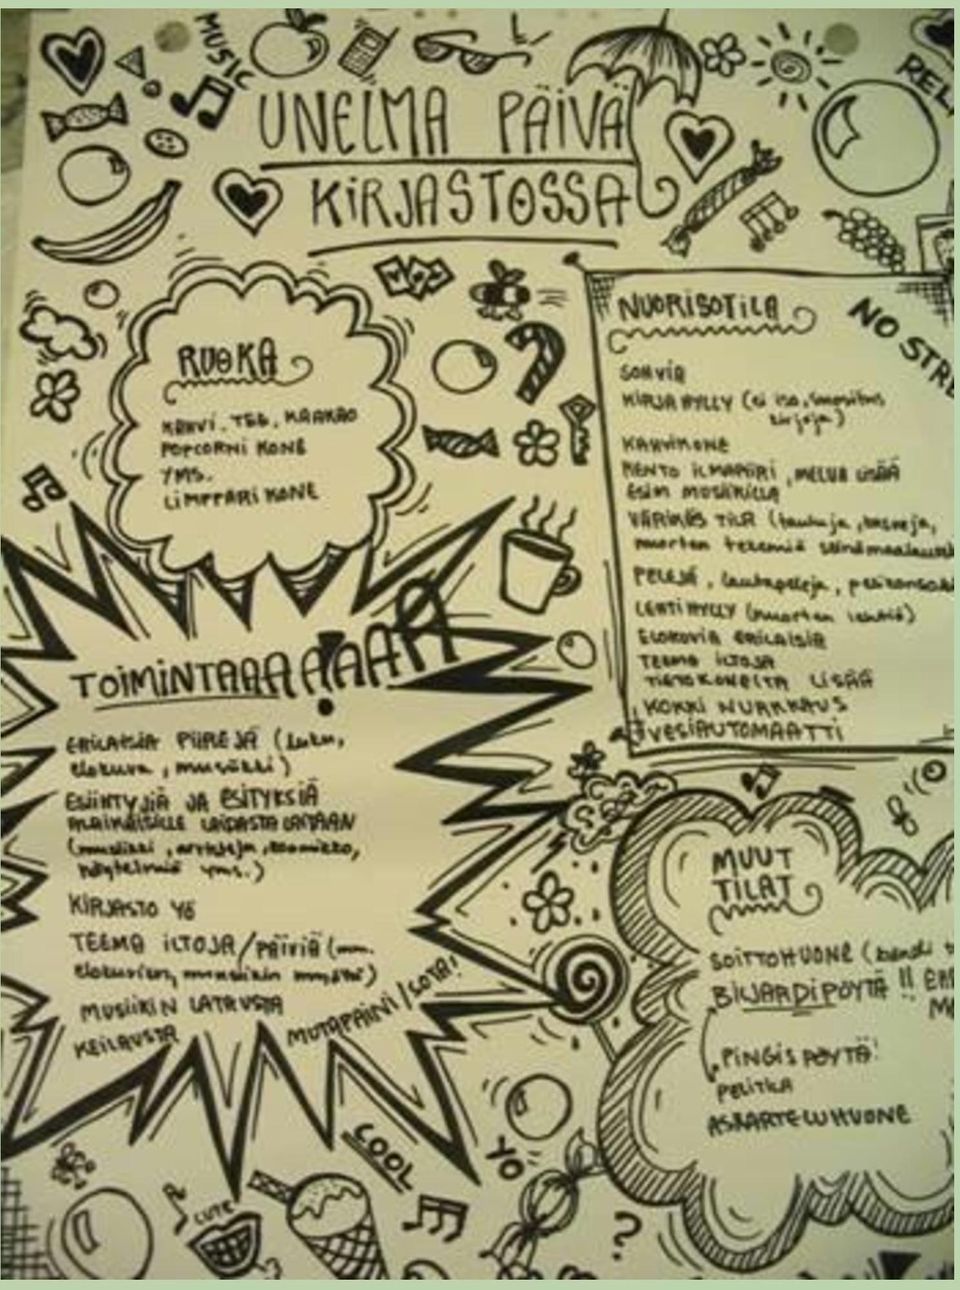 MUSIC
RELA
UNELMA PÄIVÄ
KIRJASTOSSA
RUOKA
KAHVI, TEE, KAAKAO
POPCORNI KONE
YMS.
LIMPPARI KONE
NUORISOTILA
SOHVIA
KIRJAHYLLY (ei iso,
kirjoja)
KAHVIKONE
RENTO ILMAPIIRI, MELUA LISÄÄ
ESIM MUSIIKILLA
VÄRIKÄS TILA (tauluja,
nuorten tekemiä seinämaalauks
PELEJÄ, lautapelejä, pelikonsol
LEHTIHYLLY (nuorten lehtiä)
ELOKUVIA ERILAISIA
TEEMA ILTOJA
TIETOKONEITA LISÄÄ
KOKKI NURKKAUS
VESIAUTOMAATTI
NO STRE
TOIMINTAAAAAAAA!
ERILAISIA PIIREJÄ (luku,
elokuva, musiikki)
ESIINTYJIÄ JA ESITYKSIÄ
ALAIKÄISILLE LAIDASTA LAITAAN
(musiikki, artisteja, koomikko,
näytelmiä yms.)
KIRJASTO YÖ
TEEMA ILTOJA/PÄIVIÄ (mm.
elokuvien, musiikin myötä)
MUSIIKIN LATAUSTA
KEILAUSTA
MUTAPAINI/SOTA!
MUUT
TILAT
SOITTOHUONE (bändi
BILJARDIPÖYTÄ !!
PINGIS PÖYTÄ!
PELITILA
ASKARTELUHUONE
COOL
YO
CUTE
?